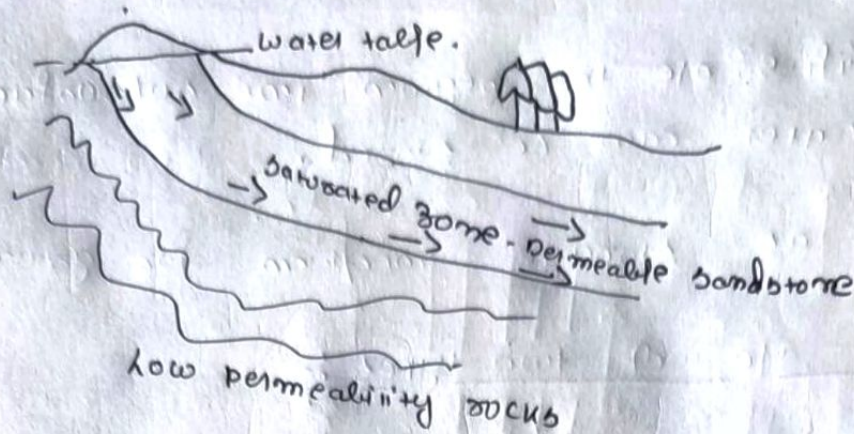 water table.
Saturated zone - Permeable sandstone
Low permeability rocks